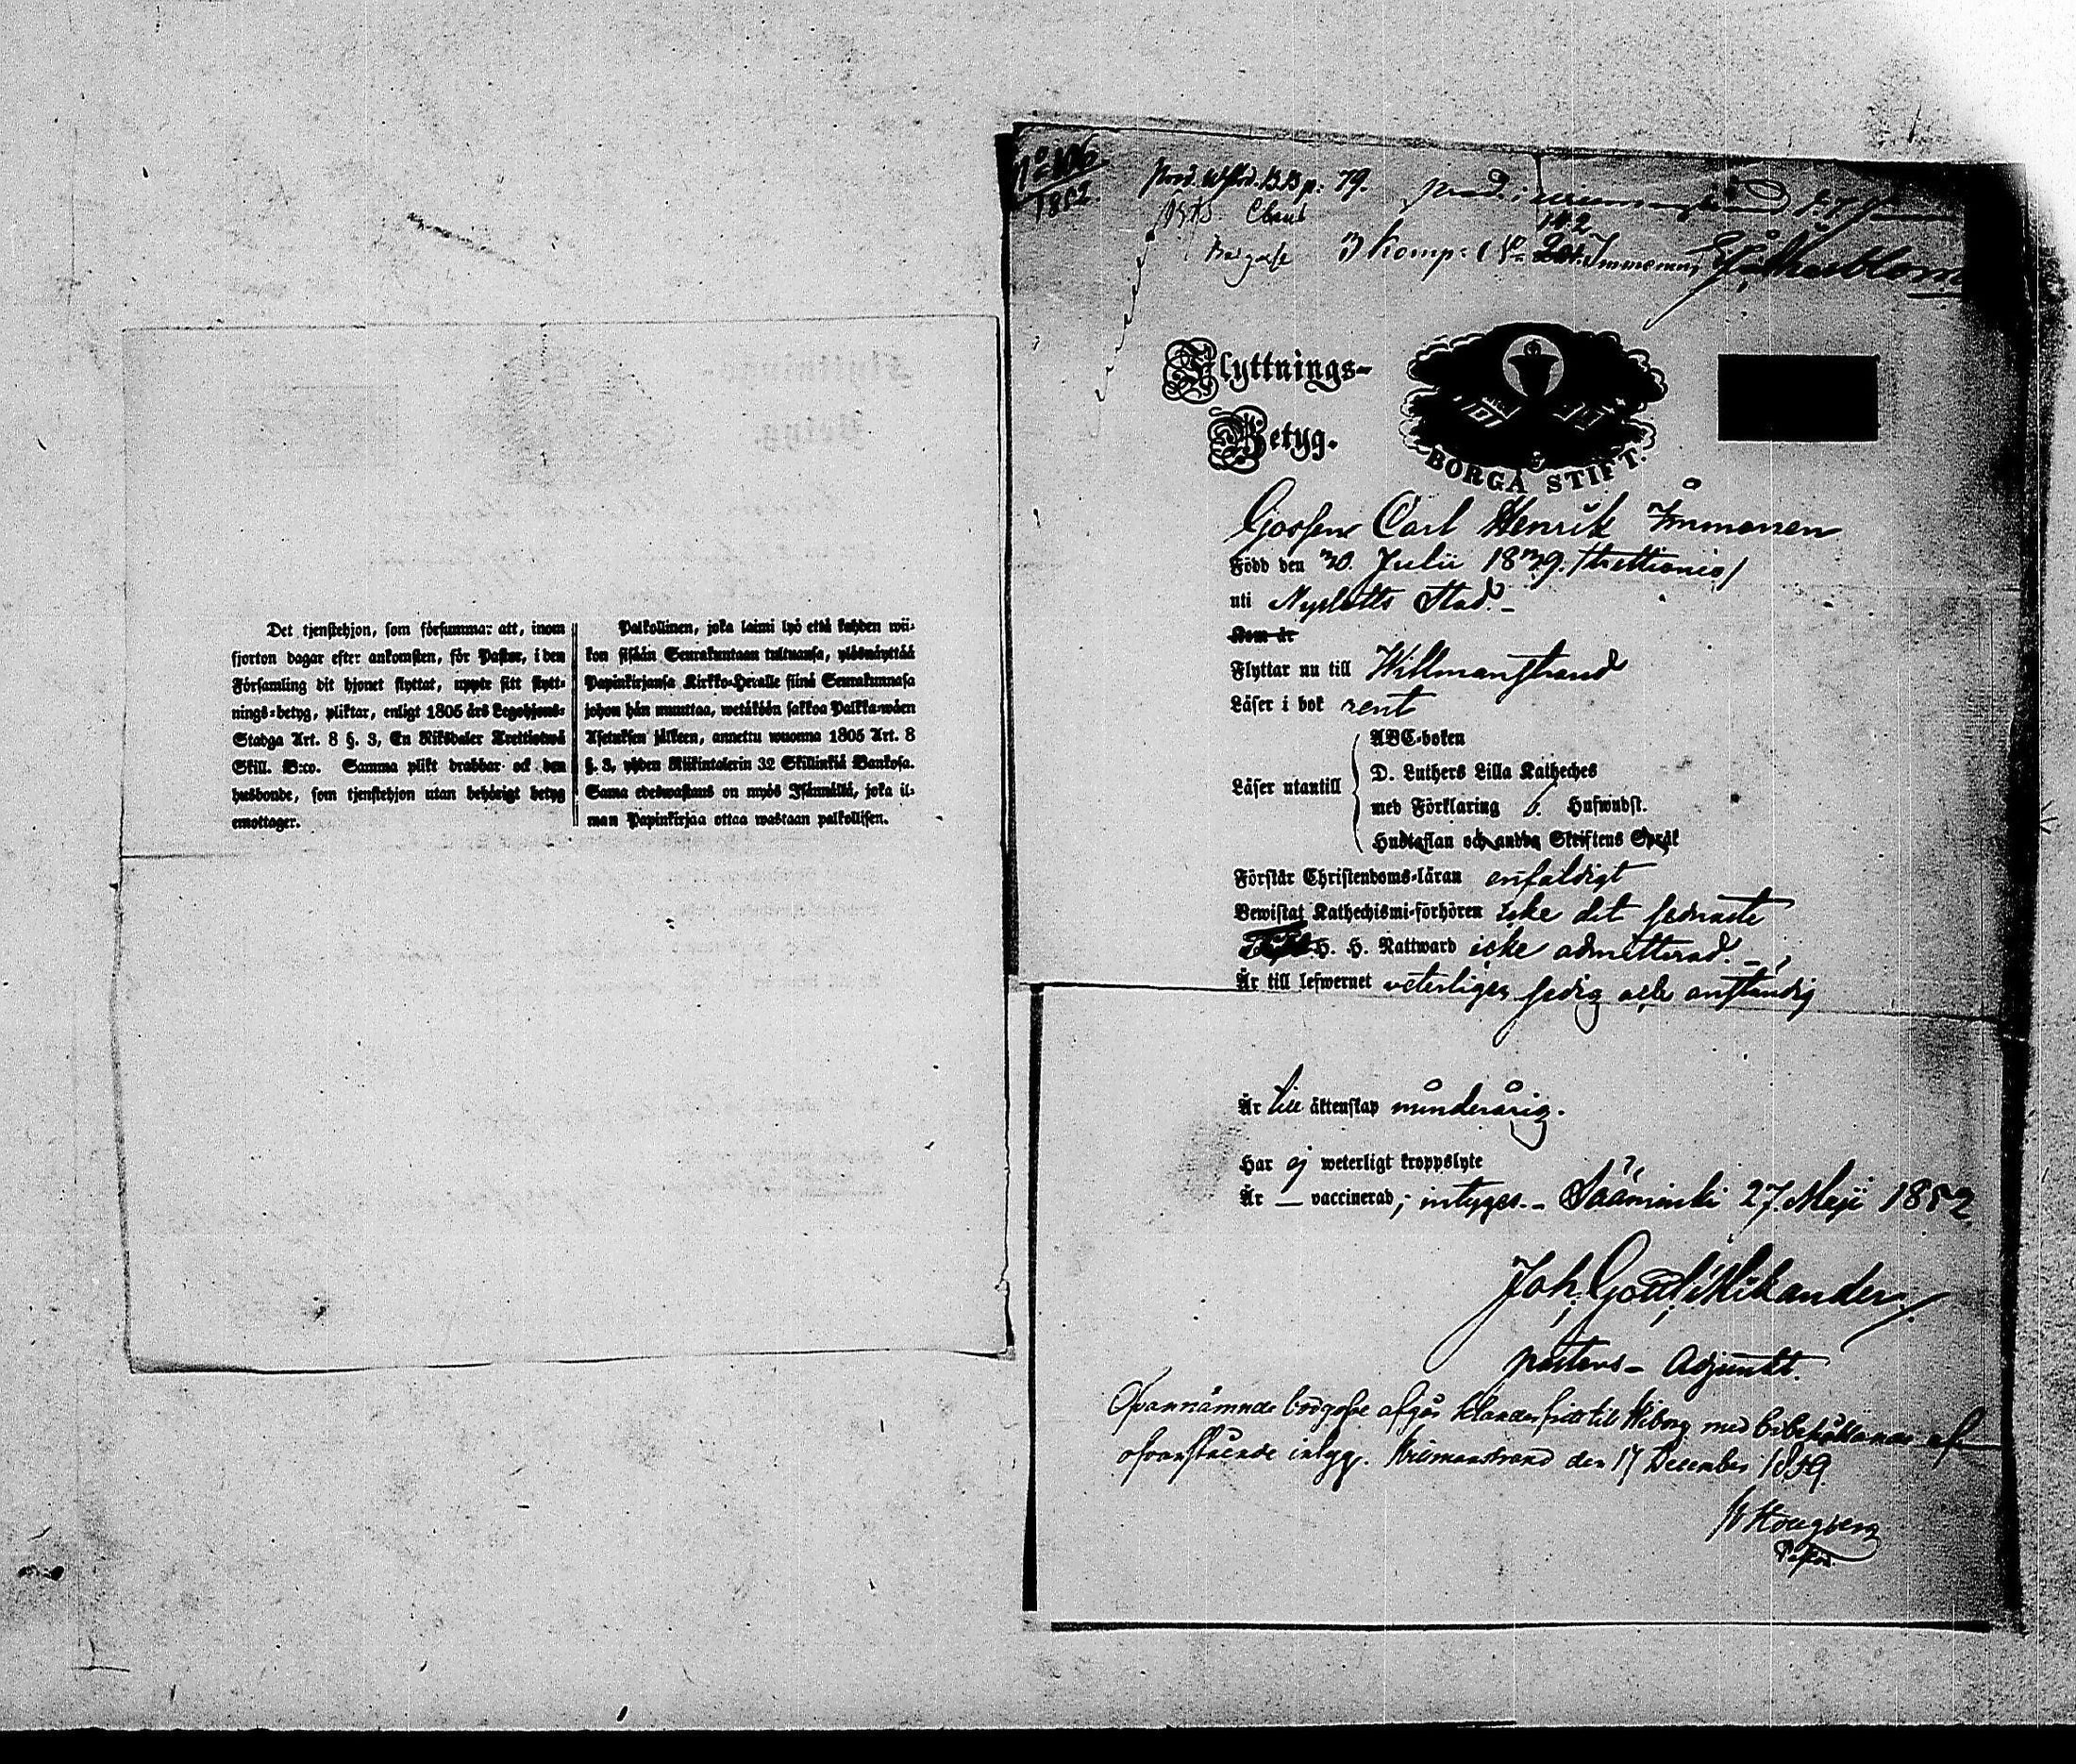 Det tjenstehjon, som försummar att, inom
fjorton dagar efter ankomsten, för Pastor, i den
Församling dit hjonet flyttat, uppte sitt flytt-
nings-betyg, pliktar, enligt 1805 års Legohjons-
Stadga Art. 8 §. 3, En Riksdaler Trettiotwå
Skill. B:co. Samma plikt drabbar ock den
husbonde, som tjenstehjon utan behörigt betyg
emottager.
Palkollinen, joka laimi lyö että kahden wii-
kon sisään Seurakuntaan tultuansa, ylösnäyttää
Papinkirjansa Kirkko-Herralle siinä Seurakunnasa
johon hän muuttaa, wetäköön sakkoa Palkka-wäen
Asetuksen jälkeen, annettu wuonna 1805 Art. 8
§. 3, yhden Riikintalerin 32 Skillinkiä Bankosa.
Sama edeswastaus on myös Isännällä, joka il-
man Papinkirjaa ottaa wastaan palkollisen.
No 106
1852.
p: 79.
142
3 Komp:
Flyttnings-
Betyg.
BORGÅ STIFT.
Gossen Carl Henrik Immonen
Född den 30. Julii 1839. /trettionio/
uti Nyslotts Stad.-
Som är
Flyttar nu till Willmanstrand
Läser i bok rent
Läser utantill
ABC-boken
D. Luthers Lilla Katheches
med Förklaring 6. Hufwudst.
Hustaflan och andra Skriftens Språk
Förstår Christendoms-läran enfaldigt
Bewistat Kathechismi-förhören icke det sednaste
H. H. Nattward icke admitterad.-
Är till lefwernet veterligen sedig och anständig
Är till äktenskap minderårig.
Har ej weterligt kroppslyte
Är — vaccinerad; intygas.- Sääminki 27. Maji 1852
Joh. Gottl. Mikander
pastors- Adjunkt.
Ofvannämnde afgår till Wiborg med bibehållande af
ofvanstående intyg. Wilmanstrand den 17 December 1859
Pastor